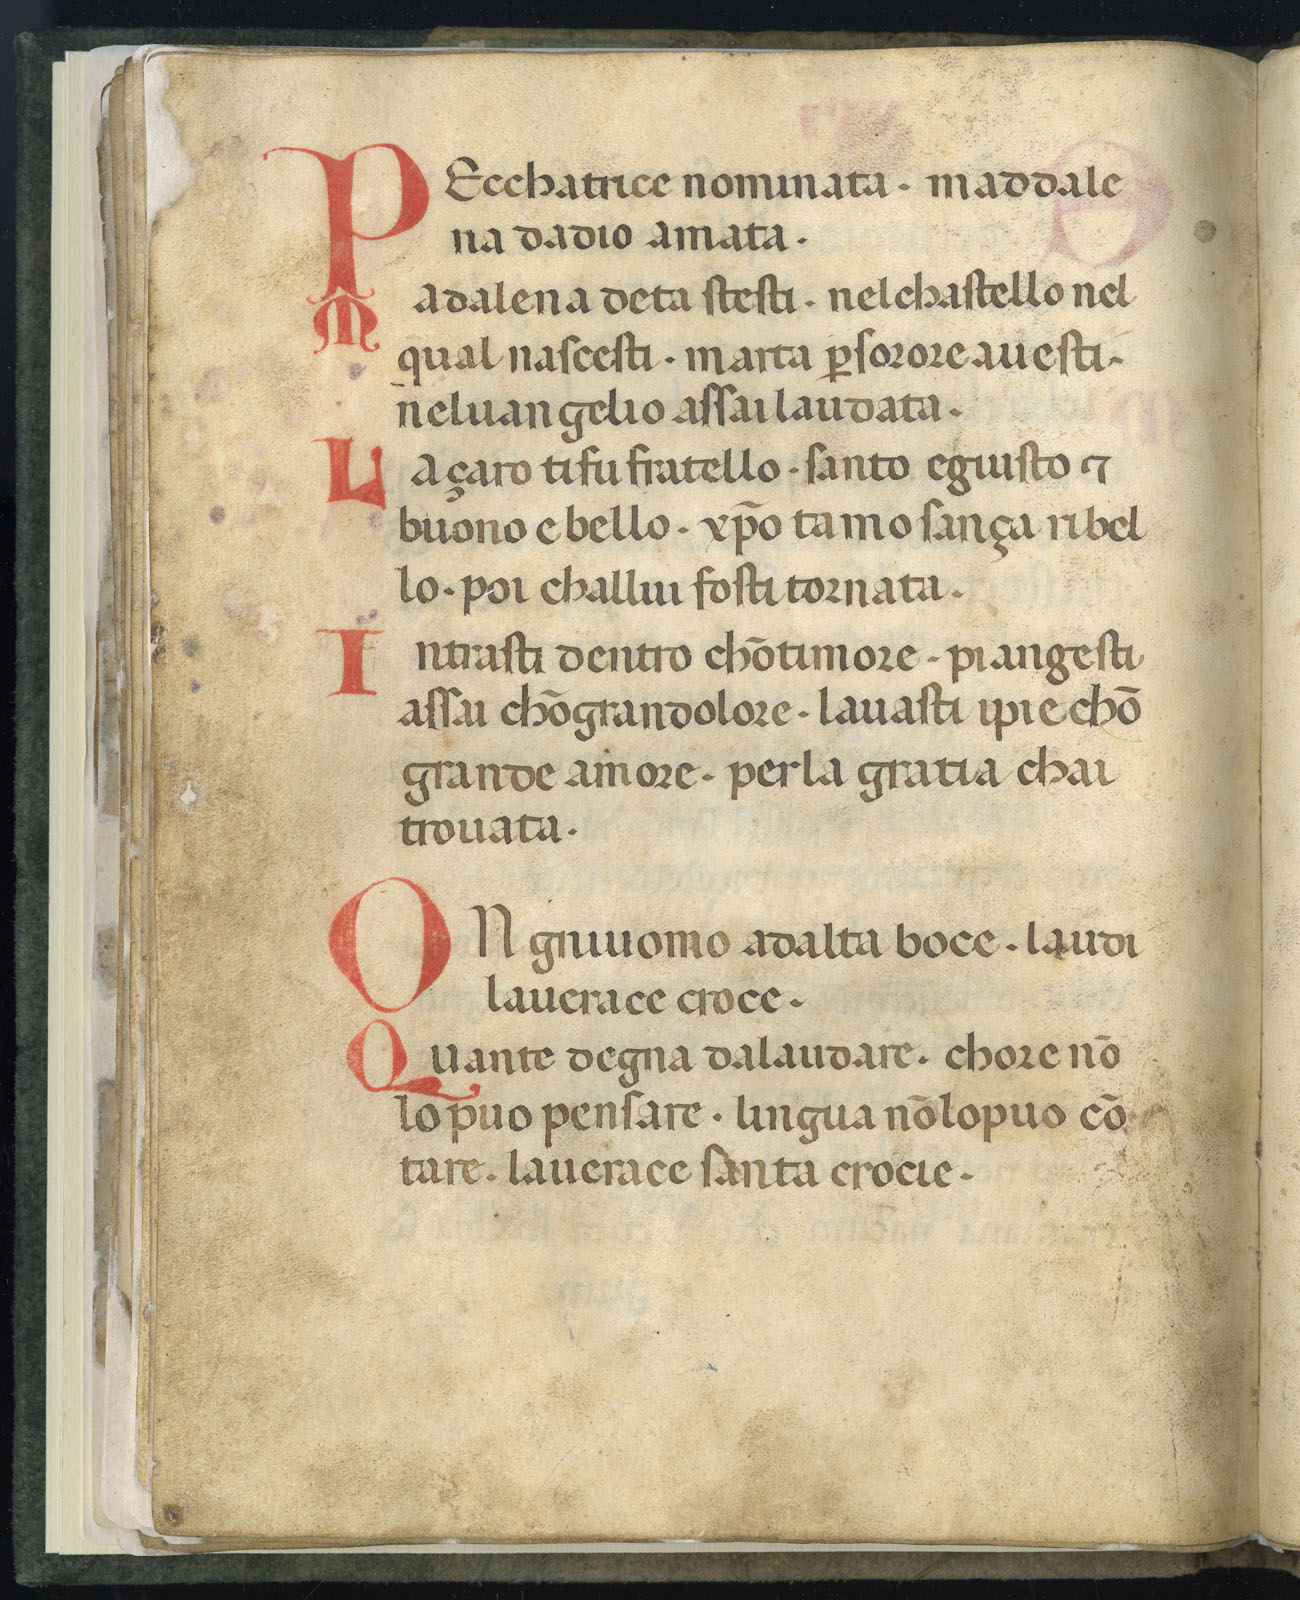 PEcchatrice nominata · maddale
na dadio amata ·
Madalena deta stesti · nelchastello nel
qual nascesti · marta ꝑsorore auesti ·
neluangelio assai laudata ·
Laçaro tifu fratello · santo egiusto ⁊
buono e bello · xp̄o tamo sança ribel
lo · poi challui fosti tornata ·
Intrasti dentro chōtimore · piangesti
assai chōgrandolore · lauasti ipie chō
grande amore · perla gratia chai
trouata ·
ON gniuuomo adalta boce · laudi
lauerace croce ·
Quante degna dalaudare · chore nō
lo puo pensare · lingua nōlopuo cō
tare · lauerace santa crocie ·